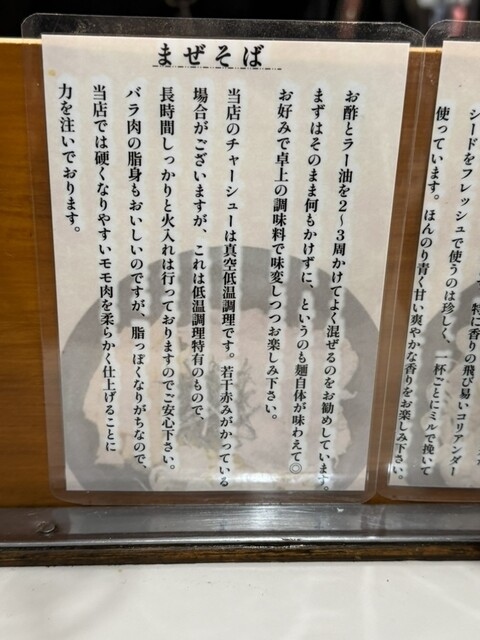 まぜそば
お酢とラー油を2〜3周かけてよく混ぜるのをお勧めしています。
まずはそのまま何もかけずに、というのも麺自体が味わえて◎
お好みで卓上の調味料で味変しつつお楽しみ下さい。
当店のチャーシューは真空低温調理です。若干赤みがかっている
場合がございますが、これは低温調理特有のもので、
長時間しっかりと火入れは行っておりますのでご安心下さい。
バラ肉の脂身もおいしいのですが、脂っぽくなりがちなので、
当店では硬くなりやすいモモ肉を柔らかく仕上げることに
力を注いでおります。
特に香りの飛び易いコリアンダー
シードをフレッシュで使うのは珍しく、一杯ごとにミルで挽いて
使っています。ほんのり青く甘い爽やかな香りをお楽しみ下さい。